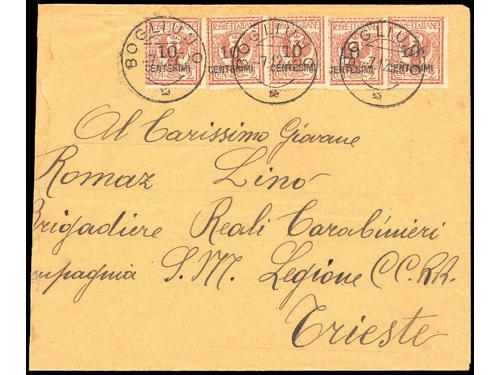 POSTE ITALIANE
10 10 10 10 10
CENTESIMI CENTESIMI CENTESIMI CENTESIMI CENTESIMI
BOGLIUNO BOGLIUNO BOGLIUNO
Al Carissimo Giovane
Romaz Linó
Brigadiere Reali Carabinieri
mpagnia S.M. Legione CC.RR.
Trieste